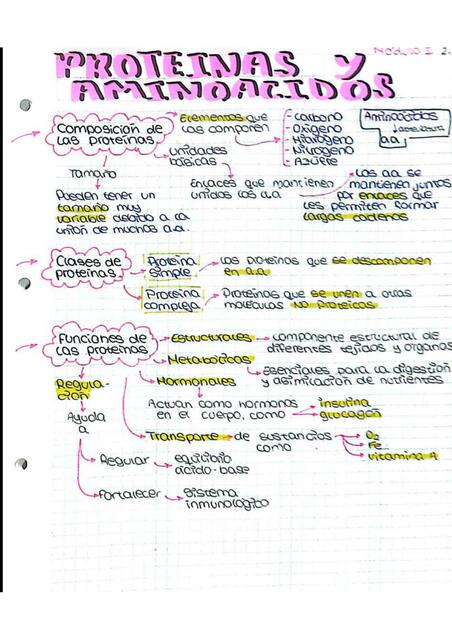 MÓDULO I
PROTEINAS Y
AMINOACIDOS
Composición de
las proteínas
Elementos que
las componen
- Carbono
- Oxígeno
- Hidrógeno
- Nitrógeno
- Azufre
Aminoácidos
aa.
unidades
básicas
Enlaces que mantienen
unidos los a.a
Los aa. se
mantienen juntos
por enlaces que
les permiten formar
largas cadenas
Tamaño
Pueden tener un
tamaño muy
variable debido a la
unión de muchos a.a.
Clases de
proteínas
Proteína
simple
Las proteínas que se descomponen
en a.a
Proteína
compleja
Proteínas que se unen a otras
moléculas no proteicas
Funciones de
las proteínas
Estructurales
componente estructural de
diferentes tejidos y órganos
Metabólicas
Esenciales para la digestión
y asimilación de nutrientes
Hormonales
Actúan como hormonas
en el cuerpo, como
insulina
glucagón
Transporte de sustancias
como
O₂
Fe
vitamina A
Regula-
ción
Ayuda
a
Regular
equilibrio
ácido-base
Fortalecer
sistema
inmunológico